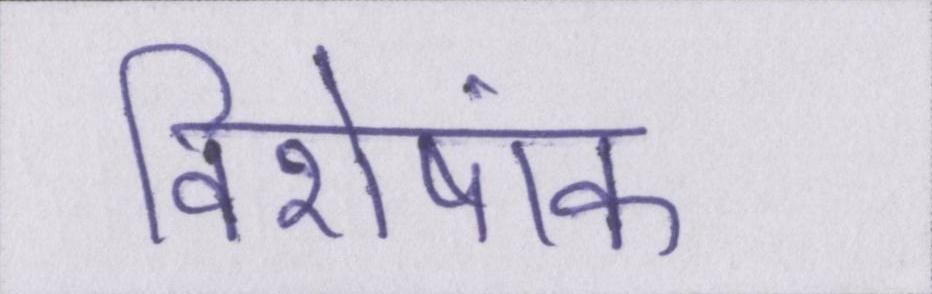 विशेषांक